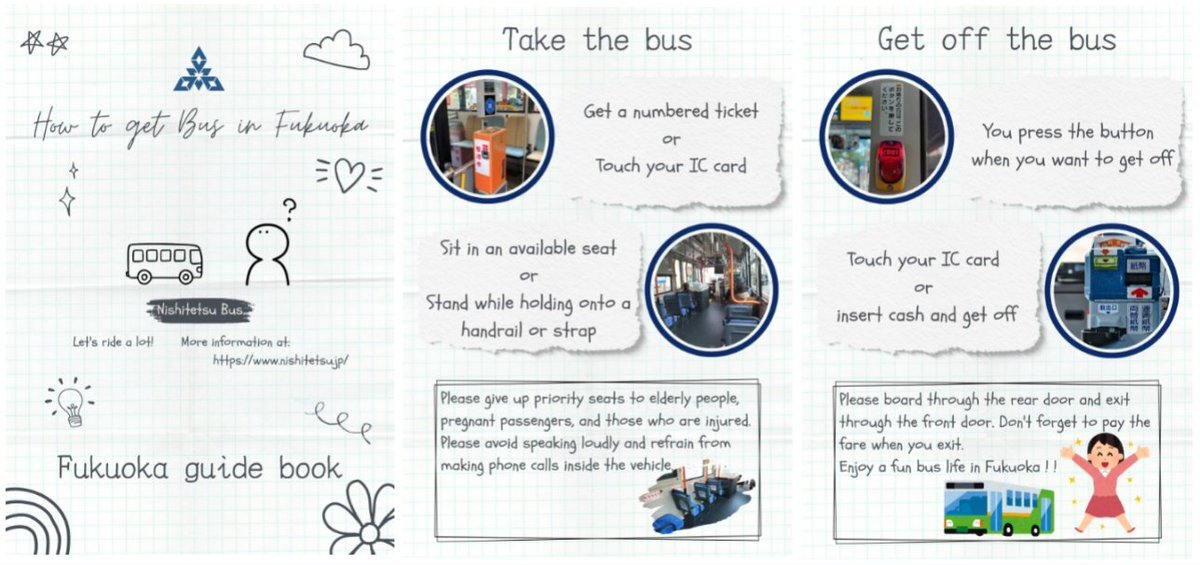 How to get Bus in Fukuoka
?
Nishitetsu Bus
Let's ride a lot!
More information at:
https://www.nishitetsu.jp/
Fukuoka guide book
Take the bus
Get a numbered ticket
or
Touch your IC card
Sit in an available seat
or
Stand while holding onto a
handrail or strap
Please give up priority seats to elderly people,
pregnant passengers, and those who are injured.
Please avoid speaking loudly and refrain from
making phone calls inside the vehicle.
Get off the bus
You press the button
when you want to get off
Touch your IC card
or
insert cash and get off
紙幣
Please board through the rear door and exit
through the front door. Don't forget to pay the
fare when you exit.
Enjoy a fun bus life in Fukuoka ! !